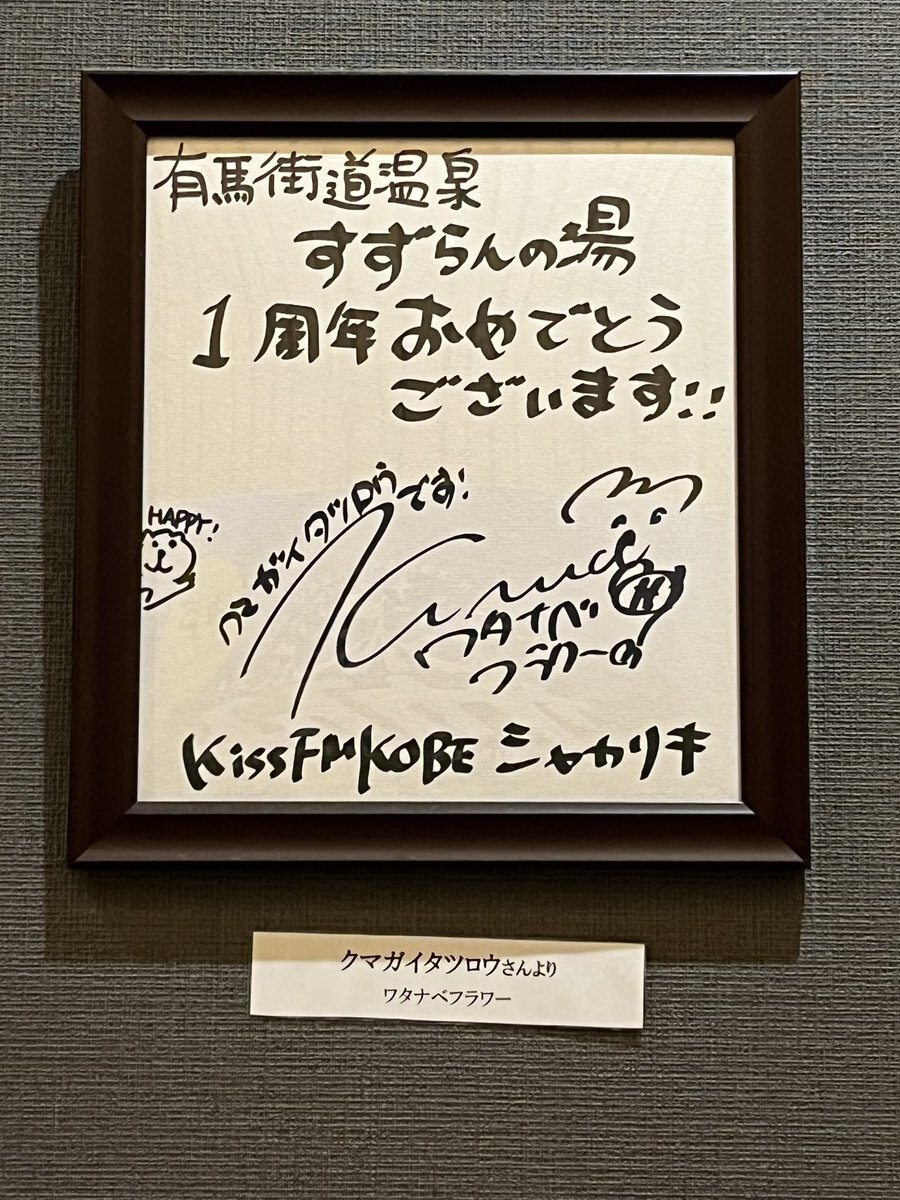 有馬街道温泉
すずらんの湯
1周年おめでとう
ございます!!
HAPPY!
クマガイタツロウです!
ワタナベ
フラワーの
KissFMKOBE シャカリキ
クマガイタツロウさんより
ワタナベフラワー